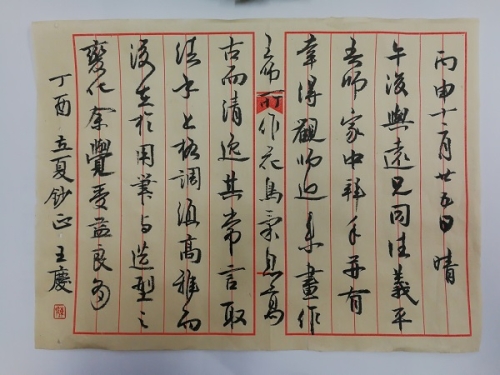 丙申十二月廿五日 晴
午後與遠兄同往義平
吾師家中拜年并有
幸得觀師近來畫作
吾师所作花鳥氣息高
古而清逸其常言取
法乎上格調須高雅而
後在於用筆与造型之
變化余覺受益良多
丁酉立夏鈔正 王慶